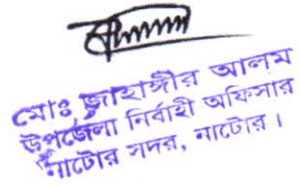 মোঃ জাহাঙ্গীর আলম
উপজেলা নির্বাহী অফিসার
নাটোর সদর, নাটোর।